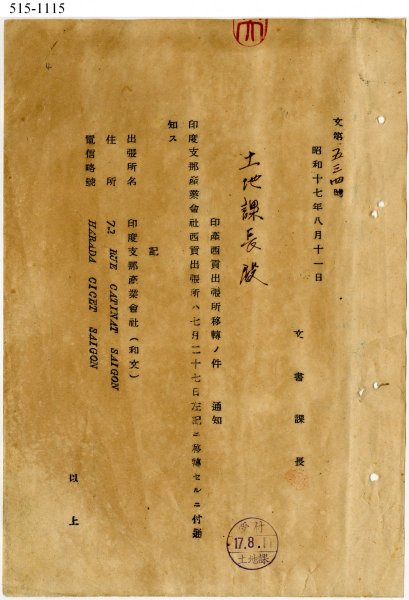 515-1115
文第五三四號
昭和十七年八月十一日
文書課長
土地課長殿
印產西貢出張所移轉ノ件 通知
印度支那產業會社西貢出張所ハ七月二十七日左記ニ移轉セルニ付通
知ス
記
出張所名 印度支那產業會社(和文)
住所 72 RUE CATINAT SAIGON
電信略號 HARADA CICET SAIGON
以上
受付
17.8.11
土地課